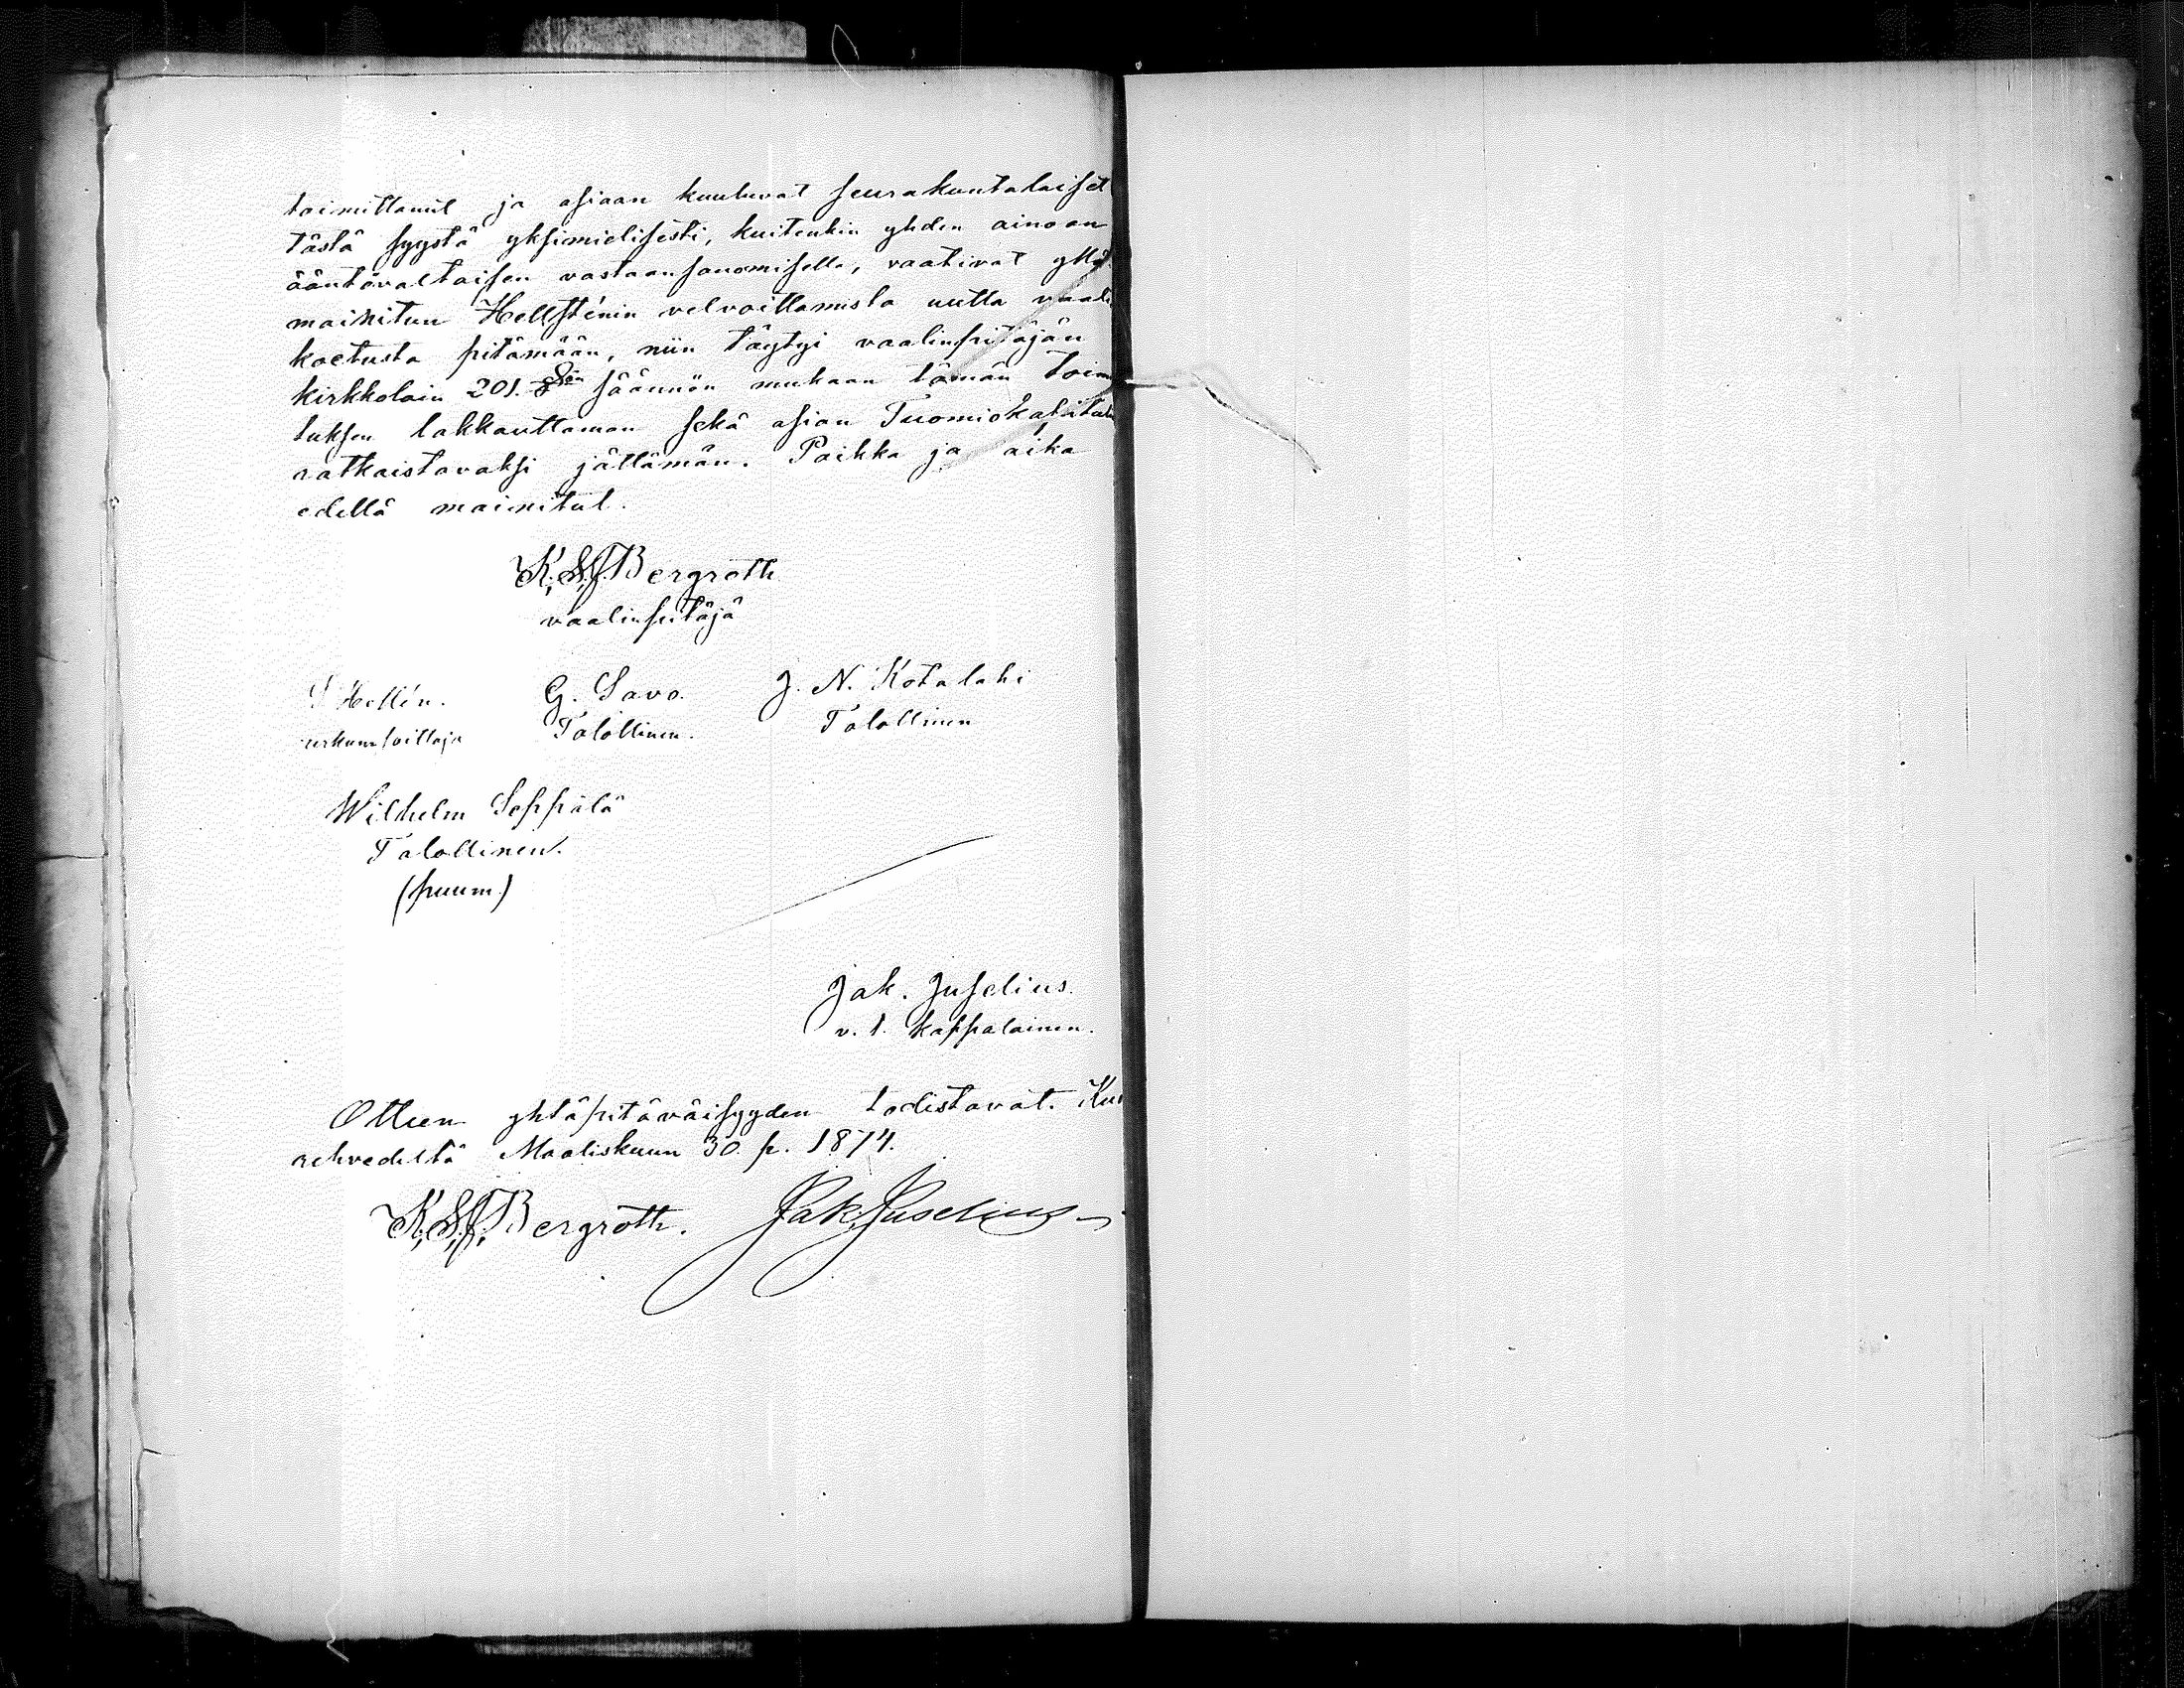 toimittanut ja asiaan kuuluvat seurakuntalaiset
tästä syystä yksimielisesti, kuitenkin yhden ainoan
ääntövaltaisen vastaansanomisella, vaativat
mainitun Hellsténin velvoittamista uutta vaali
koetusta pitämään, niin täytyi vaalinpitäjän
kirkkolain 201. §:ín säännön mukaan tämän toimi
tuksen lakkauttaman sekä asian Tuomiokapitulin
ratkaistavaksi jättämän. Paikka ja aika
edellä mainitut.
K. S. J. Bergroth
vaalinpitäjä
Hellén. G. Savo. J. N. Kotalahi
urkunsoittaja Talollinen. Talollinen
Wilhelm Seppälä
Talollinen.
(puum.)
Jak. Juselius.
v. t. kappalainen.
Otteen yhtäpitäväisyyden todistavat. Kuo
rehvedeltä Maaliskuun 30. p. 1874.
K. S. J. Bergroth. Jak. Juselius